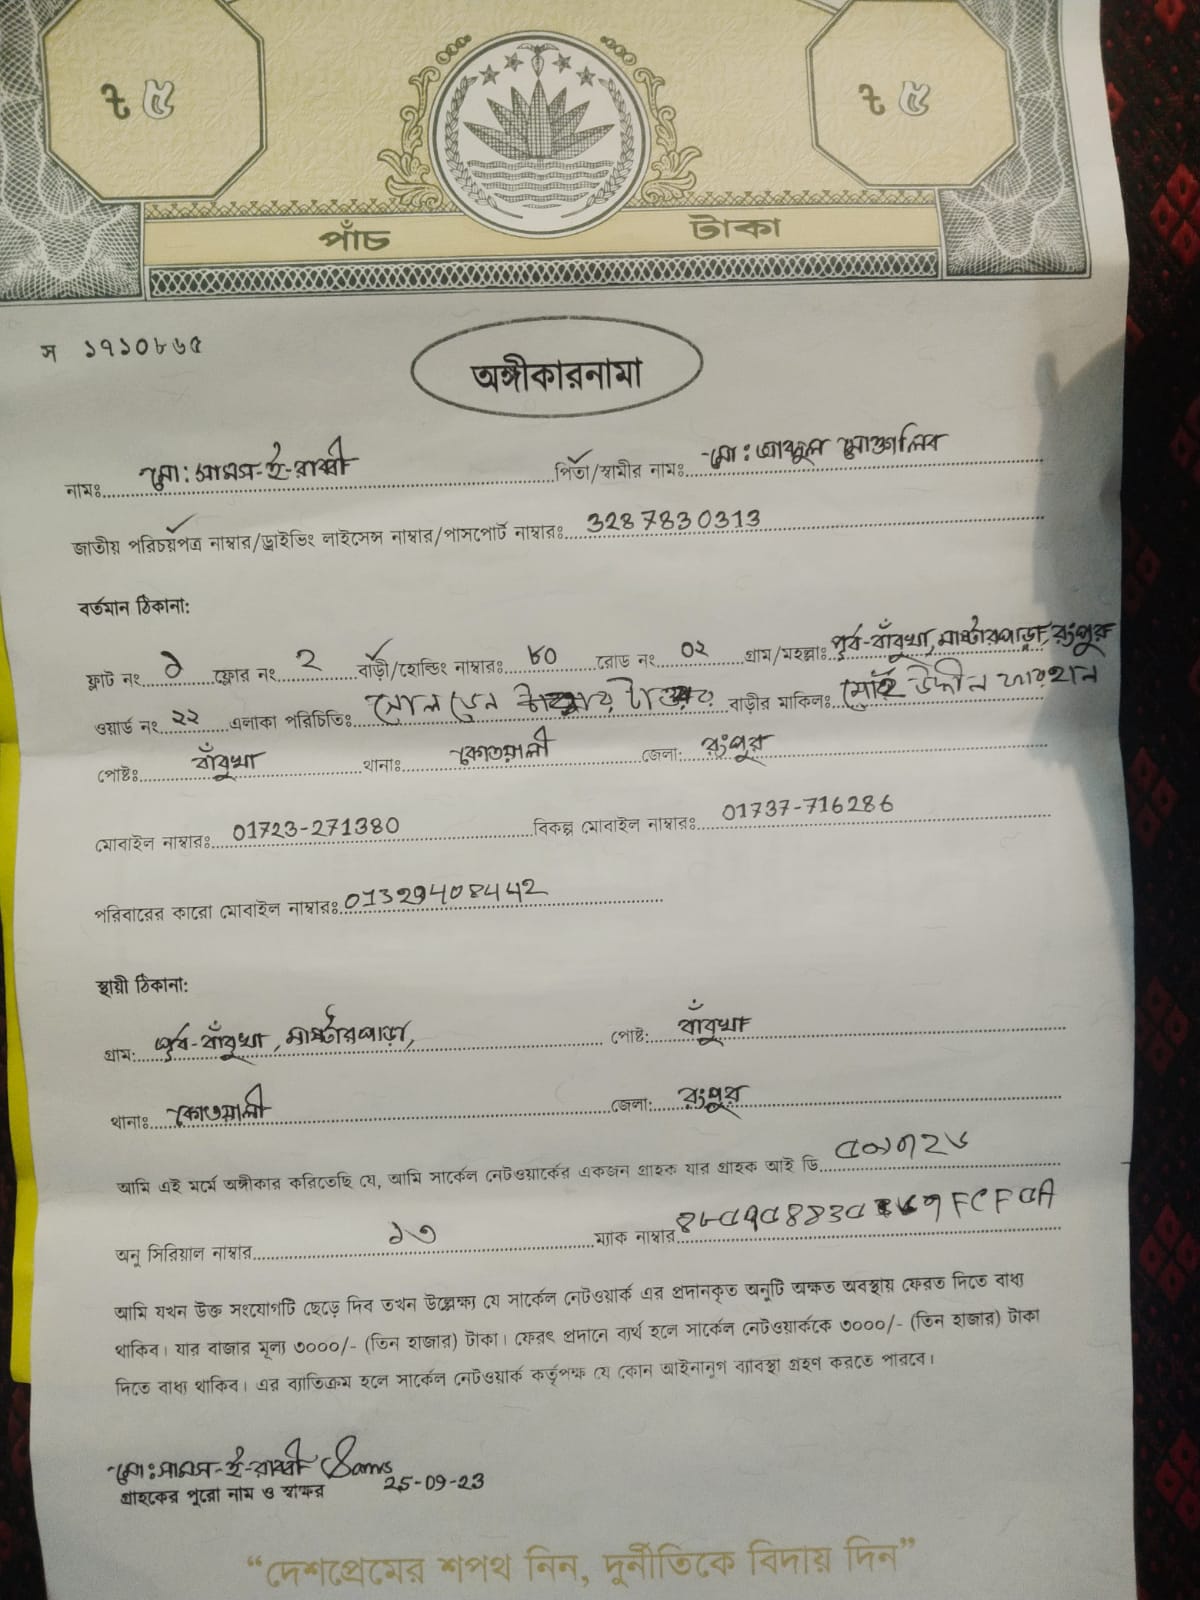 ৳ ৫ ৳ ৫
পাঁচ টাকা
স ১৭১০৮৬৫
অঙ্গীকারনামা
নামঃ মো: সামস-ই-রাব্বী পিতা/স্বামীর নামঃ মো: আব্দুল মোত্তালিব
জাতীয় পরিচয়পত্র নাম্বার/ড্রাইভিং লাইসেন্স নাম্বার/পাসপোর্ট নাম্বারঃ 3287830313
বর্তমান ঠিকানা:
ফ্লাট নং ১ ফ্লোর নং ২ বাড়ী/হোল্ডিং নাম্বারঃ ৮০ রোড নং ০২ গ্রাম/মহল্লাঃ পূর্ব-বাঁবুখা, মাষ্টারপাড়া, রংপুর
ওয়ার্ড নং ২২ এলাকা পরিচিতিঃ গোলডেন টাওয়ার বাড়ীর মাকিলঃ উদ্দীন ফারহান
পোষ্টঃ বাঁবুখা থানাঃ কোতয়ালী জেলা: রংপুর
মোবাইল নাম্বারঃ 01723-271380 বিকল্প মোবাইল নাম্বারঃ 01737-716286
পরিবারের কারো মোবাইল নাম্বারঃ 01329408442
স্থায়ী ঠিকানা:
গ্রাম: পূর্ব-বাঁবুখা, মাষ্টারপাড়া, পোষ্ট: বাঁবুখা
থানাঃ কোতয়ালী জেলা: রংপুর
আমি এই মর্মে অঙ্গীকার করিতেছি যে, আমি সার্কেল নেটওয়ার্কের একজন গ্রাহক যার গ্রাহক আই ডি ৫০১৭২৬
অনু সিরিয়াল নাম্বার ১৩ ম্যাক নাম্বার
আমি যখন উক্ত সংযোগটি ছেড়ে দিব তখন উল্লেক্ষ্য যে সার্কেল নেটওয়ার্ক এর প্রদানকৃত অনুটি অক্ষত অবস্থায় ফেরত দিতে বাধ্য
থাকিব। যার বাজার মূল্য ৩০০০/- (তিন হাজার) টাকা। ফেরৎ প্রদানে ব্যর্থ হলে সার্কেল নেটওয়ার্ককে ৩০০০/- (তিন হাজার) টাকা
দিতে বাধ্য থাকিব। এর ব্যাতিক্রম হলে সার্কেল নেটওয়ার্ক কর্তৃপক্ষ যে কোন আইনানুগ ব্যাবস্থা গ্রহণ করতে পারবে।
মো: সামস-ই-রাব্বী Sams
গ্রাহকের পুরো নাম ও স্বাক্ষর 25-09-23
“দেশপ্রেমের শপথ নিন, দুর্নীতিকে বিদায় দিন”